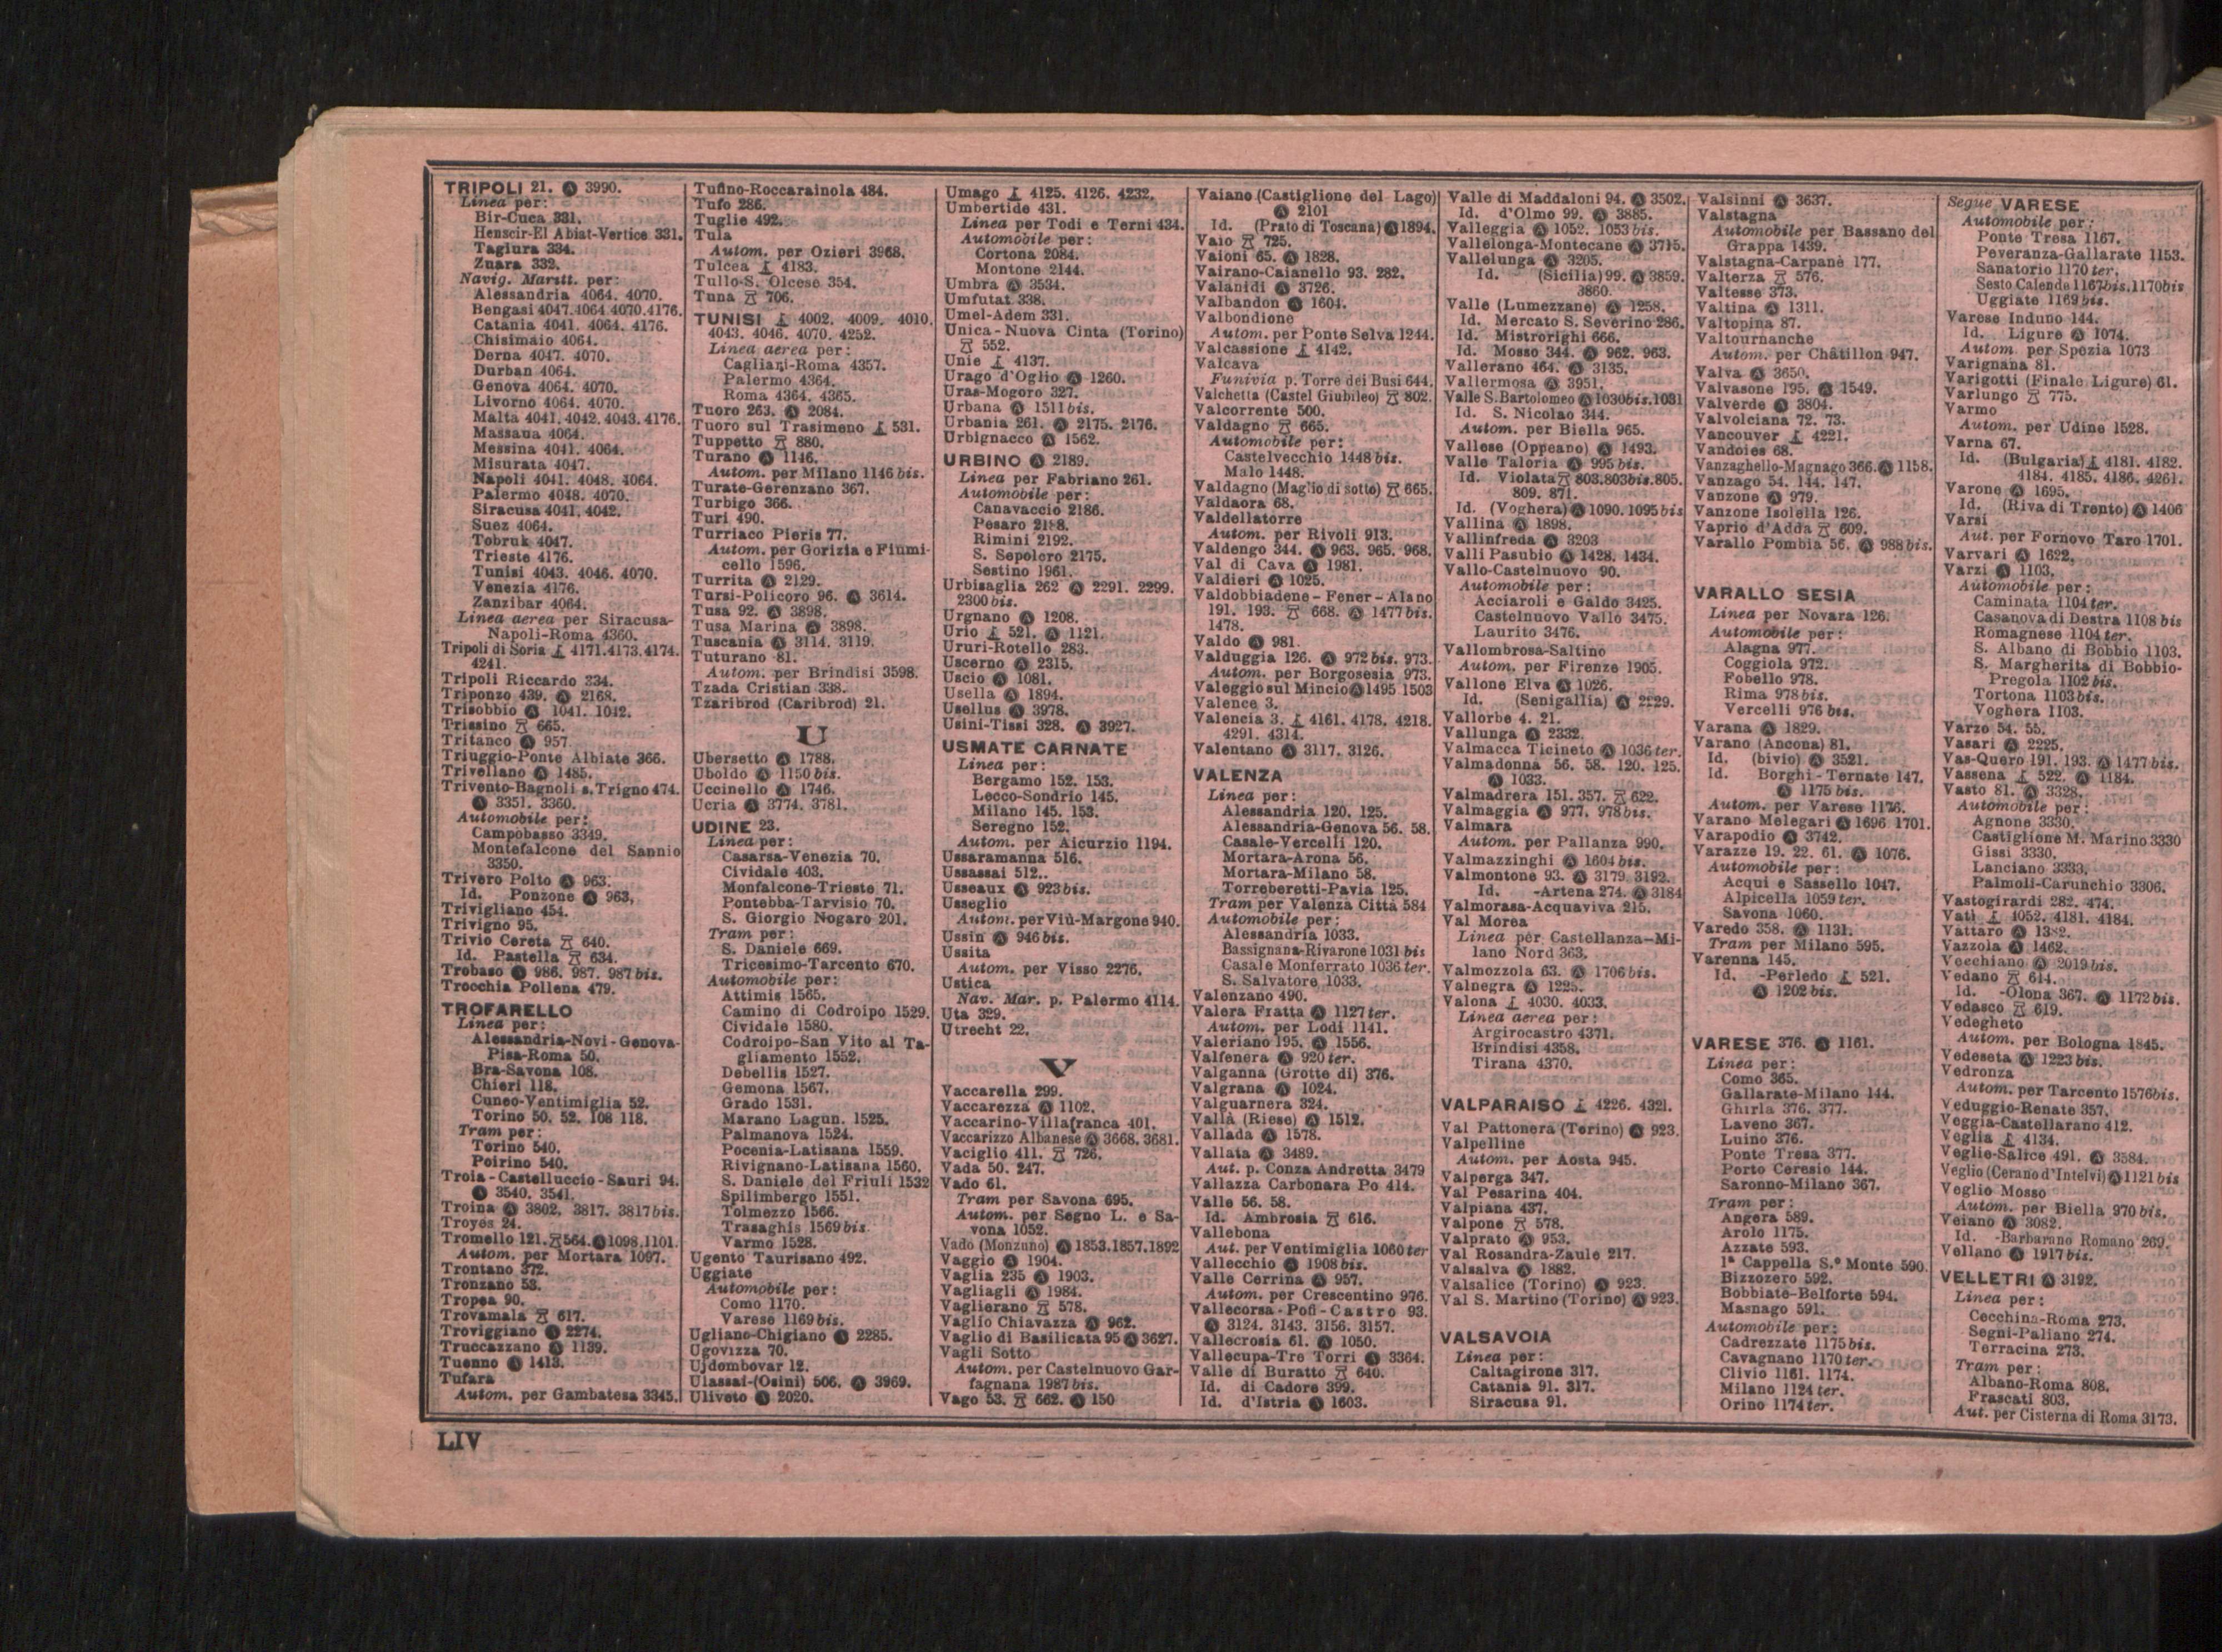 TRIPOLI 21. Ⓐ 3990.
Linea per:
Bir-Cuca 331.
Henscir-El Abiat-Vertice 331.
Tagiura 334.
Zuara 332.
Navig. Maritt. per:
Alessandria 4064. 4070.
Bengasi 4047.4064 4070.4176.
Catania 4041. 4064. 4176.
Chisimaio 4064.
Derna 4047. 4070.
Durban 4064.
Genova 4064. 4070.
Livorno 4064. 4070.
Malta 4041. 4042. 4043. 4176.
Massaua 4064.
Messina 4041. 4064.
Misurata 4047.
Napoli 4041. 4048. 4064.
Palermo 4048. 4070.
Siracusa 4041. 4042.
Suez 4064.
Tobruk 4047.
Trieste 4176.
Tunisi 4043. 4046. 4070.
Venezia 4176.
Zanzibar 4064.
Linea aerea per Siracusa-
Napoli-Roma 4360.
Tripoli di Soria 4171.4173.4174.
4241.
Tripoli Riccardo 334.
Triponzo 439. Ⓐ 2168.
Trisobbio Ⓐ 1041. 1042.
Trissino 665.
Tritanco Ⓐ 957
Triuggio-Ponte Albiate 366.
Trivellano Ⓐ 1485.
Trivento-Bagnoli s. Trigno 474.
Ⓐ 3351. 3360.
Automobile per:
Campobasso 3349.
Montefalcone del Sannio
3350.
Trivero Polto Ⓐ 963.
Id. Ponzone Ⓐ 963,
Trivigliano 454.
Trivigno 95.
Trivio Cereta 640.
Id. Pastella 634.
Trobaso Ⓐ 986. 987. 987 bis.
Trocchia Pollena 479.
TROFARELLO
Linea per:
Alessandria-Novi-Genova-
Pisa-Roma 50.
Bra-Savona 108.
Chieri 118.
Cuneo-Ventimiglia 52.
Torino 50. 52. 108 118.
Tram per:
Torino 540.
Poirino 540.
Troia-Castelluccio-Sauri 94.
Ⓐ 3540. 3541.
Troina Ⓐ 3802. 3817. 3817bis.
Troyes 24.
Tromello 121. 564. Ⓐ 1098.1101.
Autom. per Mortara 1097.
Trontano 372.
Tronzano 53.
Tropea 90.
Trovamala 617.
Troviggiano Ⓐ 2274.
Truccazzano Ⓐ 1139.
Tuenno Ⓐ 1413.
Tufara
Autom. per Gambatesa 3345.
Tufino-Roccarainola 484.
Tufo 286.
Tuglie 492.
Tula
Autom. per Ozieri 3968.
Tulcea 4183.
Tullo-S. Olcese 354.
Tuna 706.
TUNISI 4002. 4009. 4010.
4043. 4046. 4070. 4252.
Linea aerea per:
Cagliari-Roma 4357.
Palermo 4364.
Roma 4364. 4365.
Tuoro 263. Ⓐ 2084.
Tuoro sul Trasimeno 531.
Tuppetto 880.
Turano Ⓐ 1146.
Autom. per Milano 1146 bis.
Turate-Gerenzano 367.
Turbigo 366.
Turi 490.
Turriaco Pieris 77.
Autom. per Gorizia e Fiumi-
cello 1596.
Turrita Ⓐ 2129.
Tursi-Policoro 96. Ⓐ 3614.
Tusa 92. Ⓐ 3898.
Tusa Marina Ⓐ 3898.
Tuscania Ⓐ 3114. 3119.
Tuturano 81.
Autom. per Brindisi 3598.
Tzada Cristian 338.
Tzaribrod (Caribrod) 21.
U
Ubersetto Ⓐ 1788.
Uboldo Ⓐ 1150 bis.
Uccinello Ⓐ 1746.
Ucria Ⓐ 3774. 3781.
UDINE 23.
Linea per:
Casarsa-Venezia 70.
Cividale 403.
Monfalcone-Trieste 71.
Pontebba-Tarvisio 70.
S. Giorgio Nogaro 201.
Tram per:
S. Daniele 669.
Tricesimo-Tarcento 670.
Automobile per:
Attimis 1565.
Camino di Codroipo 1529.
Cividale 1580.
Codroipo-San Vito al Ta-
gliamento 1552.
Debellis 1527.
Gemona 1567.
Grado 1531.
Marano Lagun. 1525.
Palmanova 1524.
Pocenia-Latisana 1559.
Rivignano-Latisana 1560.
S. Daniele del Friuli 1532
Spilimbergo 1551.
Tolmezzo 1566.
Trasaghis 1569 bis.
Varmo 1528.
Ugento Taurisano 492.
Uggiate
Automobile per:
Como 1170.
Varese 1169 bis.
Ugliano-Chigiano Ⓐ 2285.
Ugovizza 70.
Ujdombovar 12.
Ulassai-(Osini) 506. Ⓐ 3969.
Uliveto Ⓐ 2020.
Umago 4125. 4126. 4232.
Umbertide 431.
Linea per Todi e Terni 434.
Automobile per:
Cortona 2084.
Montone 2144.
Umbra Ⓐ 3534.
Umfutat 338.
Umel-Adem 331.
Unica-Nuova Cinta (Torino)
552.
Unie 4137.
Urago d'Oglio Ⓐ 1260.
Uras-Mogoro 327.
Urbana Ⓐ 1511 bis.
Urbania 261. Ⓐ 2175. 2176.
Urbignacco Ⓐ 1562.
URBINO Ⓐ 2189.
Linea per Fabriano 261.
Automobile per:
Canavaccio 2186.
Pesaro 2188.
Rimini 2192.
S. Sepolcro 2175.
Sestino 1961.
Urbisaglia 262 Ⓐ 2291. 2299.
2300 bis.
Urgnano Ⓐ 1208.
Urio 521. Ⓐ 1121.
Ururi-Rotello 283.
Uscerno Ⓐ 2315.
Uscio Ⓐ 1081.
Usella Ⓐ 1894.
Usellus Ⓐ 3978.
Usini-Tissi 328. Ⓐ 3927.
USMATE CARNATE
Linea per:
Bergamo 152. 153.
Lecco-Sondrio 145.
Milano 145. 153.
Seregno 152.
Autom. per Aicurzio 1194.
Ussaramanna 516.
Ussassai 512..
Usseaux Ⓐ 923 bis.
Usseglio
Autom. per Viù-Margone 940.
Ussin Ⓐ 946 bis.
Ussita
Autom. per Visso 2276.
Ustica
Nav. Mar. p. Palermo 4114.
Uta 329.
Utrecht 22.
V
Vaccarella 299.
Vaccarezza Ⓐ 1102.
Vaccarino-Villafranca 401.
Vaccarizzo Albanese Ⓐ 3668. 3681.
Vaciglio 411. 726.
Vada 50. 247.
Vado 61.
Tram per Savona 695.
Autom. per Segno L. e Sa-
vona 1052.
Vado (Monzuno) Ⓐ 1853.1857.1892
Vaggio Ⓐ 1904.
Vaglia 235 Ⓐ 1903.
Vagliagli Ⓐ 1984.
Vaglierano 578.
Vaglio Chiavazza Ⓐ 962.
Vaglio di Basilicata 95 Ⓐ 3627.
Vagli Sotto
Autom. per Castelnuovo Gar-
fagnana 1987 bis.
Vago 53. 662. Ⓐ 150
Vaiano (Castiglione del Lago)
Ⓐ 2101
Id. (Prato di Toscana) Ⓐ 1894.
Vaio 725.
Vaioni 65. Ⓐ 1828.
Vairano-Caianello 93. 282.
Valanidi Ⓐ 3726.
Valbandon Ⓐ 1604.
Valbondione
Autom. per Ponte Selva 1244.
Valcassione 4142.
Valcava
Funivia p. Torre dei Busi 644.
Valchetta (Castel Giubileo) 802.
Valcorrente 500.
Valdagno 665.
Automobile per:
Castelvecchio 1448 bis.
Malo 1448.
Valdagno (Maglio di sotto) 665.
Valdaora 68.
Valdellatorre
Autom. per Rivoli 913.
Valdengo 344. Ⓐ 963. 965. 968.
Val di Cava Ⓐ 1981.
Valdieri Ⓐ 1025.
Valdobbiadene-Fener-Alano
191. 193. 668. Ⓐ 1477 bis.
1478.
Valdo Ⓐ 981.
Valduggia 126. Ⓐ 972 bis. 973.
Autom. per Borgosesia 973.
Valeggio sul Mincio Ⓐ 1495 1503
Valence 3.
Valencia 3. 4161. 4178. 4218.
4291. 4314.
Valentano Ⓐ 3117. 3126.
VALENZA
Linea per:
Alessandria 120. 125.
Alessandria-Genova 56. 58.
Casale-Vercelli 120.
Mortara-Arona 56.
Mortara-Milano 58.
Torreberetti-Pavia 125.
Tram per Valenza Città 584
Automobile per:
Alessandria 1033.
Bassignana-Rivarone 1031 bis
Casale Monferrato 1036 ter.
S. Salvatore 1033.
Valenzano 490.
Valera Fratta Ⓐ 1127 ter.
Autom. per Lodi 1141.
Valeriano 195. Ⓐ 1556.
Valfenera Ⓐ 920 ter.
Valganna (Grotte di) 376.
Valgrana Ⓐ 1024.
Valguarnera 324.
Vallà (Riese) Ⓐ 1512.
Vallada Ⓐ 1578.
Vallata Ⓐ 3489.
Aut. p. Conza Andretta 3479
Vallazza Carbonara Po 414.
Valle 56. 58.
Id. Ambrosia 616.
Vallebona
Aut. per Ventimiglia 1060 ter
Vallecchio Ⓐ 1908 bis.
Valle Cerrina Ⓐ 957.
Autom. per Crescentino 976.
Vallecorsa-Pofi-Castro 93.
Ⓐ 3124. 3143. 3156. 3157.
Vallecrosia 61. Ⓐ 1050.
Vallecupa-Tre Torri Ⓐ 3364.
Valle di Buratto 640.
Id. di Cadore 399.
Id. d'Istria Ⓐ 1603.
Valle di Maddaloni 94. Ⓐ 3502.
Id. d'Olmo 99. Ⓐ 3885.
Valleggia Ⓐ 1052. 1053 bis.
Vallelonga-Montecane Ⓐ 3715.
Vallelunga Ⓐ 3205.
Id. (Sicilia) 99. Ⓐ 3859.
3860.
Valle (Lumezzane) Ⓐ 1258.
Id. Mercato S. Severino 286.
Id. Mistrorighi 666.
Id. Mosso 344. Ⓐ 962. 963.
Vallerano 464. Ⓐ 3135.
Vallermosa Ⓐ 3951.
Valle S.Bartolomeo Ⓐ 1030bis.1031
Id. S. Nicolao 344.
Autom. per Biella 965.
Vallese (Oppeano) Ⓐ 1493.
Valle Taloria Ⓐ 995 bis.
Id. Violata 803.803bis.805.
809. 871.
Id. (Voghera) Ⓐ 1090. 1095 bis
Vallina Ⓐ 1898.
Vallinfreda Ⓐ 3203
Valli Pasubio Ⓐ 1428. 1434.
Vallo-Castelnuovo 90.
Automobile per:
Acciaroli e Galdo 3425.
Castelnuovo Vallo 3475.
Laurito 3476.
Vallombrosa-Saltino
Autom. per Firenze 1905.
Vallone Elva Ⓐ 1026.
Id. (Senigallia) Ⓐ 2229.
Vallorbe 4. 21.
Vallunga Ⓐ 2332.
Valmacca Ticineto Ⓐ 1036 ter.
Valmadonna 56. 58. 120. 125.
Ⓐ 1033.
Valmadrera 151. 357. 622.
Valmaggia Ⓐ 977. 978 bis.
Valmara
Autom. per Pallanza 990.
Valmazzinghi Ⓐ 1604 bis.
Valmontone 93. Ⓐ 3179. 3192.
Id. -Artena 274. Ⓐ 3184
Valmorasa-Acquaviva 215.
Val Morea
Linea per Castellanza-Mi-
lano Nord 363.
Valmozzola 63. Ⓐ 1706 bis.
Valnegra Ⓐ 1225.
Valona 4030. 4033.
Linea aerea per:
Argirocastro 4371.
Brindisi 4358.
Tirana 4370.
VALPARAISO 4226. 4321.
Val Pattonera (Torino) Ⓐ 923.
Valpelline
Autom. per Aosta 945.
Valperga 347.
Val Pesarina 404.
Valpiana 437.
Valpone 578.
Valprato Ⓐ 953.
Val Rosandra-Zaule 217.
Valsalva Ⓐ 1882.
Valsalice (Torino) Ⓐ 923.
Val S. Martino (Torino) Ⓐ 923.
VALSAVOIA
Linea per:
Caltagirone 317.
Catania 91. 317.
Siracusa 91.
Valsinni Ⓐ 3637.
Valstagna
Automobile per Bassano del
Grappa 1439.
Valstagna-Carpanè 177.
Valterza 576.
Valtesse 373.
Valtina Ⓐ 1311.
Valtopina 87.
Valtournanche
Autom. per Châtillon 947.
Valva Ⓐ 3650.
Valvasone 195. Ⓐ 1549.
Valverde Ⓐ 3804.
Valvolciana 72. 73.
Vancouver 4221.
Vandoies 68.
Vanzaghello-Magnago 366. Ⓐ 1158.
Vanzago 54. 144. 147.
Vanzone Ⓐ 979.
Vanzone Isolella 126.
Vaprio d'Adda 609.
Varallo Pombia 56. Ⓐ 988 bis.
VARALLO SESIA
Linea per Novara 126.
Automobile per:
Alagna 977.
Coggiola 972.
Fobello 978.
Rima 978 bis.
Vercelli 976 bis.
Varana Ⓐ 1829.
Varano (Ancona) 81.
Id. (bivio) Ⓐ 3521.
Id. Borghi-Ternate 147.
Ⓐ 1175 bis.
Autom. per Varese 1176.
Varano Melegari Ⓐ 1696 1701.
Varapodio Ⓐ 3742.
Varazze 19. 22. 61. Ⓐ 1076.
Automobile per:
Acqui e Sassello 1047.
Alpicella 1059 ter.
Savona 1060.
Varedo 358. Ⓐ 1131.
Tram per Milano 595.
Varenna 145.
Id. -Perledo 521.
Ⓐ 1202 bis.
VARESE 376. Ⓐ 1161.
Linea per:
Como 365.
Gallarate-Milano 144.
Ghirla 376. 377.
Laveno 367.
Luino 376.
Ponte Tresa 377.
Porto Ceresio 144.
Saronno-Milano 367.
Tram per:
Angera 589.
Arolo 1175.
Azzate 593.
1ª Cappella S.º Monte 590.
Bizzozero 592.
Bobbiate-Belforte 594.
Masnago 591.
Automobile per:
Cadrezzate 1175 bis.
Cavagnano 1170 ter.
Clivio 1161. 1174.
Milano 1124 ter.
Orino 1174 ter.
Segue VARESE
Automobile per:
Ponte Tresa 1167.
Peveranza-Gallarate 1153.
Sanatorio 1170 ter.
Sesto Calende 1167bis.1170bis
Uggiate 1169 bis.
Varese Induno 144.
Id. Ligure Ⓐ 1074.
Autom. per Spezia 1073
Varignana 81.
Varigotti (Finale Ligure) 61.
Varlungo 775.
Varmo
Autom. per Udine 1528.
Varna 67.
Id. (Bulgaria) 4181. 4182.
4184. 4185. 4186. 4261.
Varone Ⓐ 1695.
Id. (Riva di Trento) Ⓐ 1406
Varsi
Aut. per Fornovo Taro 1701.
Varvari Ⓐ 1622.
Varzi Ⓐ 1103.
Automobile per:
Caminata 1104 ter.
Casanova di Destra 1108 bis
Romagnese 1104 ter.
S. Albano di Bobbio 1103.
S. Margherita di Bobbio-
Pregola 1102 bis.
Tortona 1103 bis.
Voghera 1103.
Varzo 54. 55.
Vasari Ⓐ 2225.
Vas-Quero 191. 193. Ⓐ 1477 bis.
Vassena 522. Ⓐ 1184.
Vasto 81. Ⓐ 3328.
Automobile per:
Agnone 3330.
Castiglione M. Marino 3330
Gissi 3330.
Lanciano 3333.
Palmoli-Carunchio 3306.
Vastogirardi 282. 474.
Vati 4052. 4181. 4184.
Vattaro Ⓐ 1382.
Vazzola Ⓐ 1462.
Vecchiano Ⓐ 2019 bis.
Vedano 614.
Id. -Olona 367. Ⓐ 1172 bis.
Vedasco 619.
Vedegheto
Autom. per Bologna 1845.
Vedeseta Ⓐ 1223 bis.
Vedronza
Autom. per Tarcento 1576bis.
Veduggio-Renate 357.
Veggia-Castellarano 412.
Veglia 4134.
Veglie-Salice 491. Ⓐ 3584.
Veglio (Cerano d'Intelvi) Ⓐ 1121 bis
Veglio Mosso
Autom. per Biella 970 bis.
Veiano Ⓐ 3082.
Id. -Barbarano Romano 269.
Vellano Ⓐ 1917 bis.
VELLETRI Ⓐ 3192.
Linea per:
Cecchina-Roma 273.
Segni-Paliano 274.
Terracina 273.
Tram per:
Albano-Roma 808.
Frascati 803.
Aut. per Cisterna di Roma 3173.
LIV